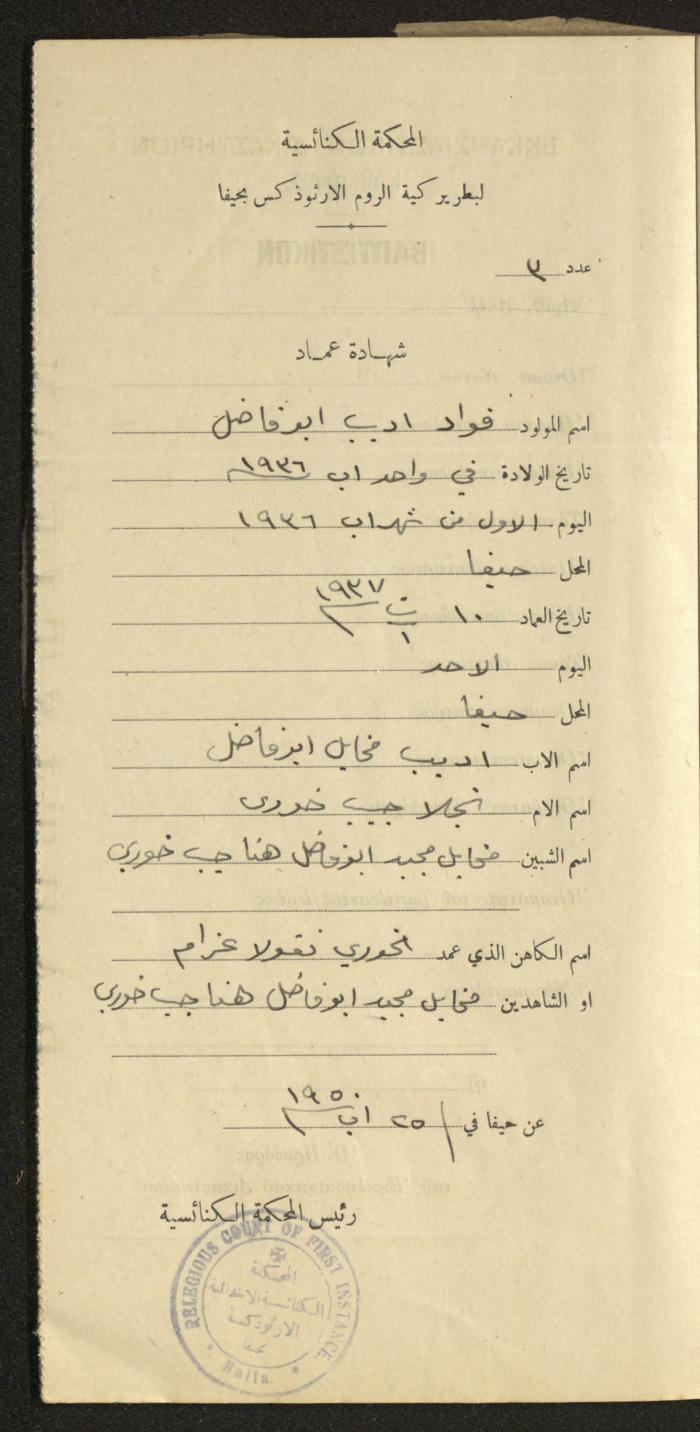 المحكمة الكنائسية
لبطريركية الروم الارثوذكس بحيفا
عدد ٣
شهادة عماد
اسم المولود فواد اديب ابوفاضل
تاريخ الولادة في واحد اب ١٩٣٦
اليوم الاول من شهر اب ١٩٣٦
المحل حيفا
تاريخ العماد ١٠ ت١ ١٩٣٧
اليوم الاحد
المحل حيفا
اسم الاب اديب مخايل ابوفاضل
اسم الام نجلا حبيب خوري
اسم الشبين مخايل مجيد ابوفاضل هنا حبيب خوري
اسم الكاهن الذي عمد الخوري نقولا عزام
او الشاهدين مخايل مجيد ابوفاضل هنا حبيب خوري
عن حيفا في ٢٥ اب ١٩٥٠
رئيس المحكمة الكنائسية
RELEGIOUS COURT OF FIRST INSTANCE.
المحكمة
الكنائسية الابتدائية
الارثوذكسية
بحيفا
Haifa.